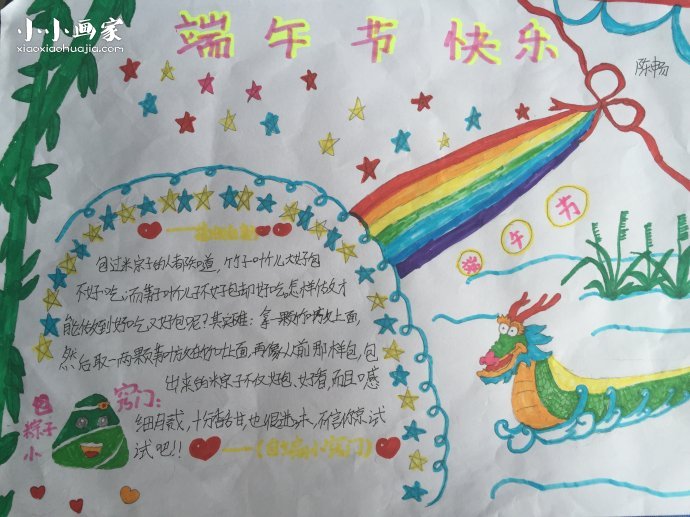 小小画家
xiaoxiaohuajia.com
端午节快乐
陈畅
端午节
包过米粽子的人都知道,竹子叶个儿大好包
不好吃,而苇子叶个儿不好包却好吃。怎样做才
能做到好吃又好包呢?其实不难:拿一颗竹叶放上面,
然后取一两颗苇叶放在竹叶上面,再像从前那样包,包
出来的米粽子不仅好包、好看,而且口感
细腻,十分香甜,也很进味,不信你就试
试吧!!
(包粽小窍门)
包粽子小
窍门: